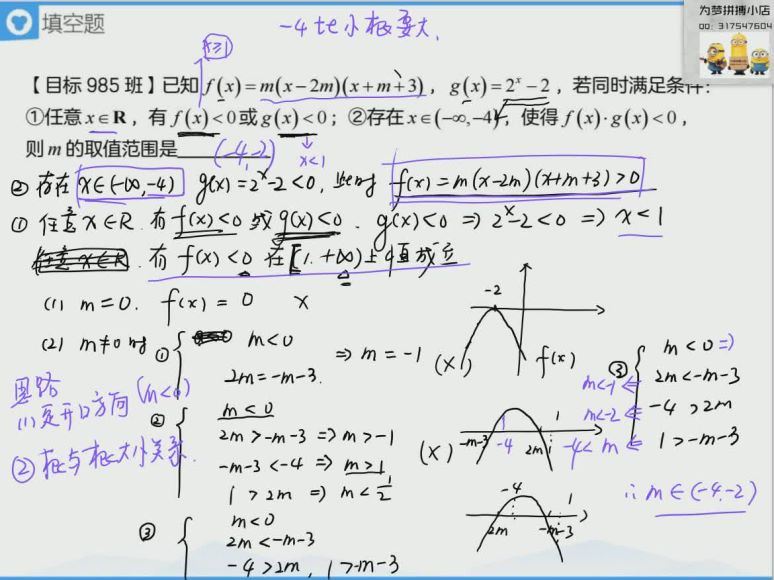 填空题
-4比小根要大.
为梦拼搏小店
QQ: 317547604
x≥1
【目标 985 班】已知 f(x)=m(x-2m)(x+m+3), g(x)=2^x-2, 若同时满足条件:
①任意 x∈R, 有 f(x)<0 或 g(x)<0; ②存在 x∈(-∞,-4), 使得 f(x)·g(x)<0,
则 m 的取值范围是 (-4,-2)
x<1
② 存在 x∈(-∞,-4) g(x)=2^x-2<0, 此时 f(x)=m(x-2m)(x+m+3)>0
① 任意 x∈R. 有 f(x)<0 或 g(x)<0. g(x)<0 ⇒ 2^x-2<0 ⇒ x<1
任意 x∈R. 有 f(x)<0 在 [1,+∞) 上恒成立
(1) m=0. f(x)=0 ×
(2) m≠0 时 ① { m<0
2m=-m-3. ⇒ m=-1 (×)
-2
f(x)
思路
(1) 定开口方向 (m<0)
② 根与根大小关系.
② { m<0
2m>-m-3 ⇒ m>-1
-m-3<-4 ⇒ m>1
1>2m ⇒ m<1/2
(×)
-m-3 -4 2m 1
③ { m<0
2m<-m-3
-4>2m, 1>-m-3
-4 1
2m -m-3
③ { m<0 ⇒
m<-1 ⇐ 2m<-m-3
m<-2 ⇐ -4>2m
-4<m ⇐ 1>-m-3
∴ m∈(-4,-2)